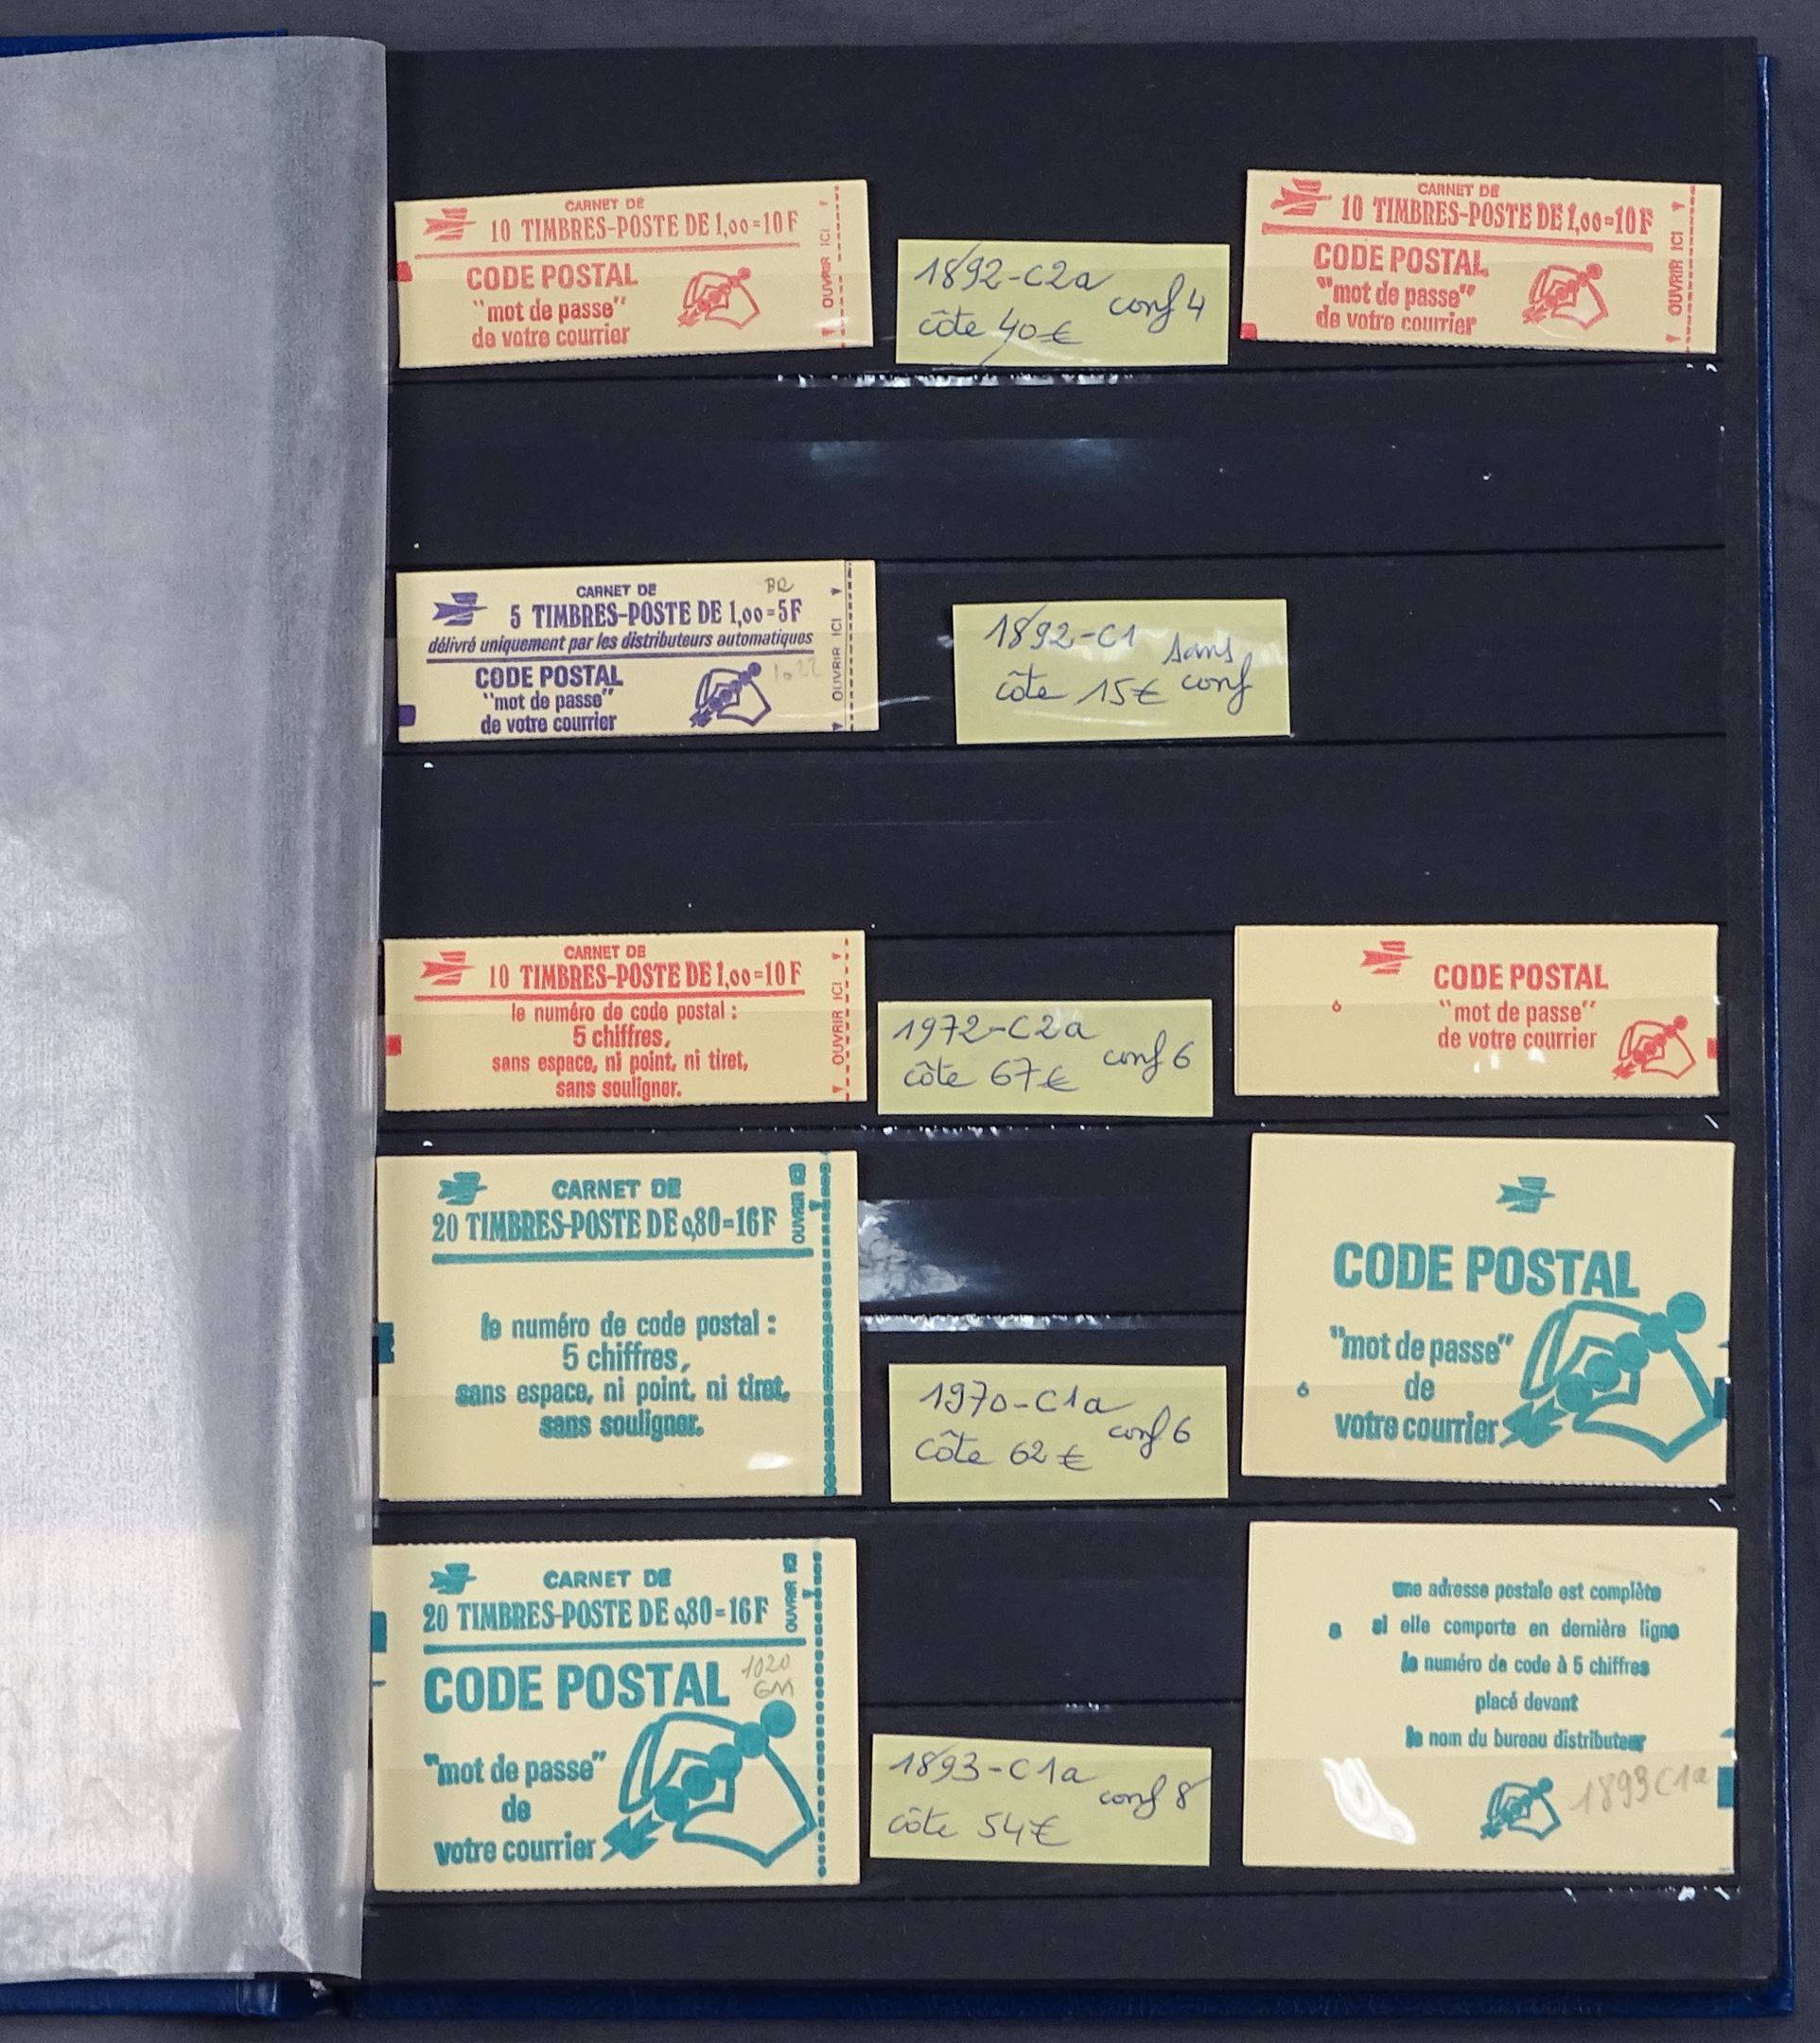 CARNET DE
10 TIMBRES-POSTE DE 1,00=10F
CODE POSTAL
"mot de passe"
de votre courrier
OUVRIR ICI
1892-C2a conf 4
côte 40€
CARNET DE
10 TIMBRES-POSTE DE 1,00=10F
CODE POSTAL
"mot de passe"
de votre courrier
OUVRIR ICI
CARNET DE
5 TIMBRES-POSTE DE 1,00=5F
délivré uniquement par les distributeurs automatiques
CODE POSTAL
"mot de passe"
de votre courrier
OUVRIR ICI
1892-C1 sans
côte 15€ conf
CARNET DE
10 TIMBRES-POSTE DE 1,00=10F
le numéro de code postal :
5 chiffres,
sans espace, ni point, ni tiret,
sans souligner.
OUVRIR ICI
1972-C2a conf 6
côte 67€
CODE POSTAL
6 "mot de passe"
de votre courrier
CARNET DE
20 TIMBRES-POSTE DE 0,80=16F
OUVRIR ICI
le numéro de code postal :
5 chiffres,
sans espace, ni point, ni tiret,
sans souligner.
1970-C1a conf 6
côte 62€
CODE POSTAL
"mot de passe"
6 de
votre courrier
CARNET DE
20 TIMBRES-POSTE DE 0,80=16F
OUVRIR ICI
CODE POSTAL
1020
GM
"mot de passe"
de
votre courrier
1893-C1a conf 8
côte 54€
une adresse postale est complète
8 si elle comporte en dernière ligne
le numéro de code à 5 chiffres
placé devant
le nom du bureau distributeur
1893C1a